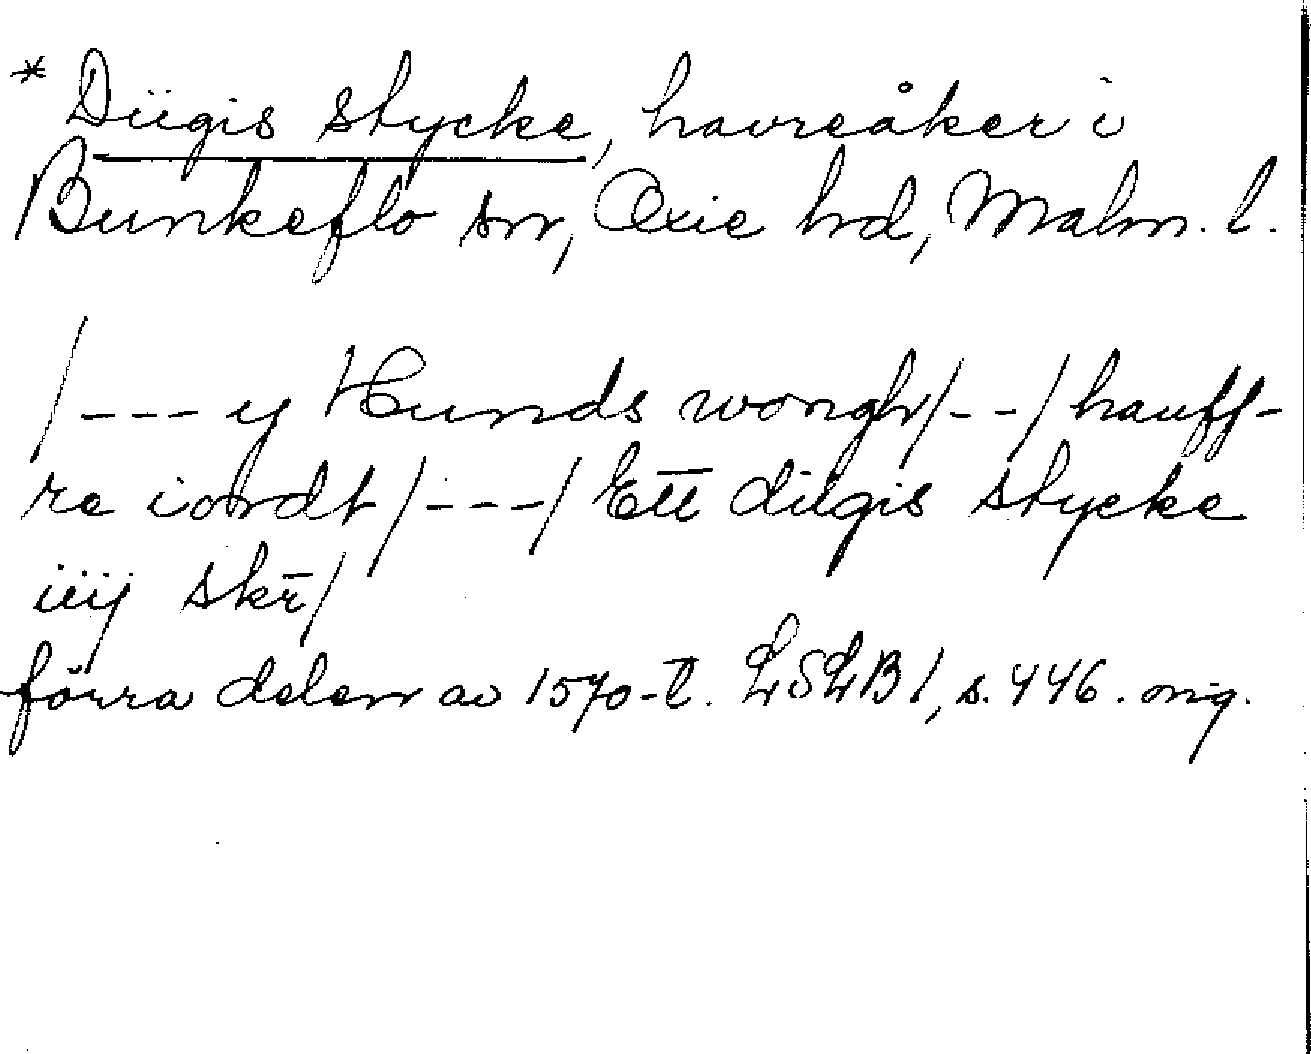 * Dügis stycke, havreåker i
Bunkeflo sn, Oxie hd, Malm. l.
/---y Hunds wongh/--/hauff-
re iordt/---/Ett dügis stycke
iiij skr̄/
förra delen av 1570-t. LSLB 1, s. 446. orig.